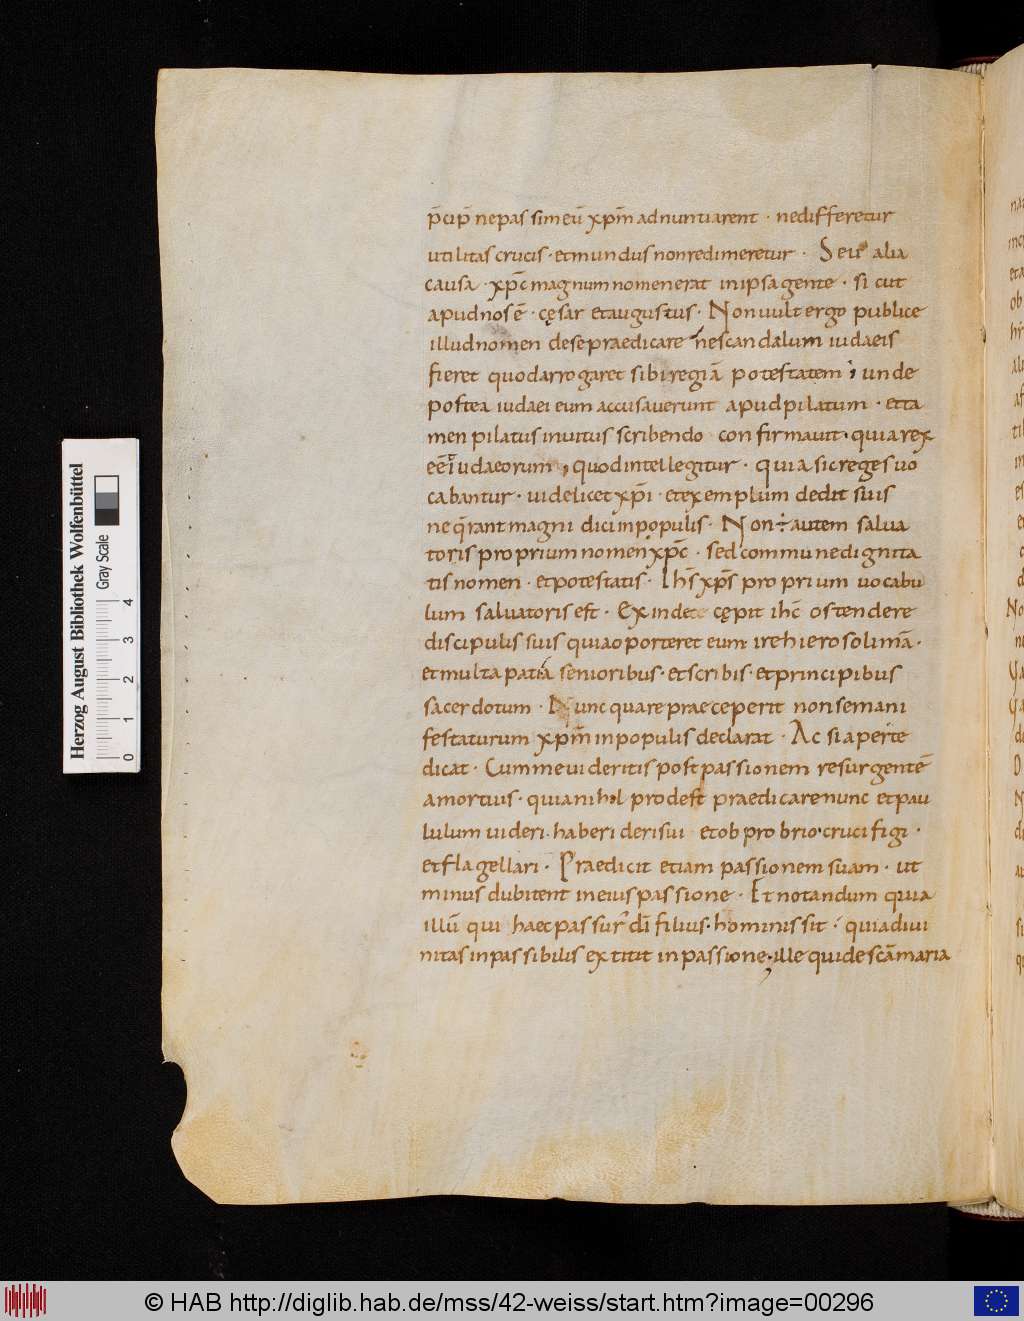 p̄cip̄ ne passim eū xp̄m adnuntiarent · ne differetur
utilitas crucis · et mundus non redimeretur · Seu alia
causa · xp̄c magnum nomen erat in ipsa gente · sicut
apud nos ē · cęsar et augustus · Non uult ergo publice
illud nomen de se praedicare ne scandalum iudaeis
fieret quod arrogaret sibi regiā potestatem unde
postea iudaei eum accusauerunt apud pilatum · et ta
men pilatus inuitus scribendo confirmauit · quia rex
eēt iudaeorum , quod intellegitur · quia sic reges uo
cabantur · uidelicet xp̄i · et exemplum dedit suis
ne q̄rant magni dici in populis · Non ÷ autem salua
toris proprium nomen xp̄c · sed commune dignita
tis nomen · et potestatis · Ihs̄ xp̄s proprium uocabu
lum saluatoris est · Exinde cępit ihc̄ ostendere
discipulis suis quia oporteret eum ire hierosolimā ·
et multa pati a senioribus · et scribis · et principibus
sacerdotum · Nunc quare praeceperit non se mani
festaturum xp̄m in populis declarat · Ac si aperte
dicat · Cum me uideritis post passionem resurgentē
a mortuis · quia nihil prodest praedicare nunc et pau
lulum uideri · haberi derisui et obprobrio · crucifigi ·
et flagellari · Praedicit etiam passionem suam · ut
minus dubitent in eius passione · Et notandum quia
illū qui haec passur' dī filius · hominis sit · quia diui
nitas inpassibilis extitit in passione · ille qui de scā maria
Herzog August Bibliothek Wolfenbüttel
Gray Scale
0 1 2 3 4
© HAB http://diglib.hab.de/mss/42-weiss/start.htm?image=00296